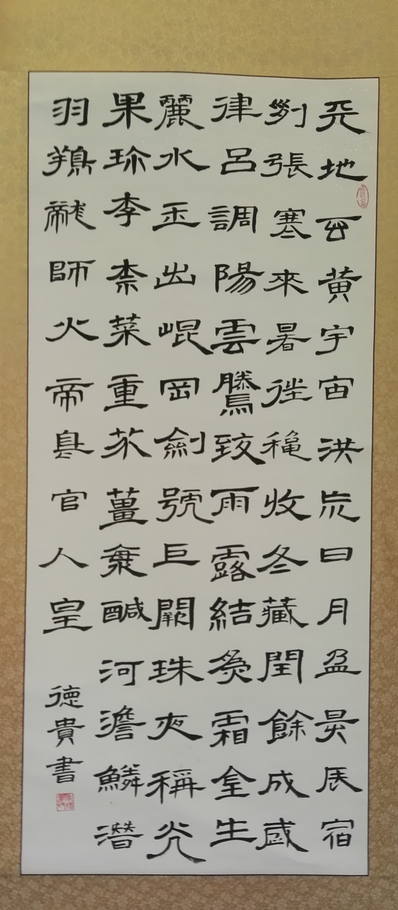 天地玄黃宇宙洪荒日月盈昃辰宿
列張寒來暑往穐收冬藏閏餘成歲
律呂調陽雲騰致雨露結為霜金生
麗水玉出崐岡劍號巨闕珠夜稱光
果珍李柰菜重芥薑鹹河澹鱗潛
羽翔龍師火帝鳥官人皇
德貴書